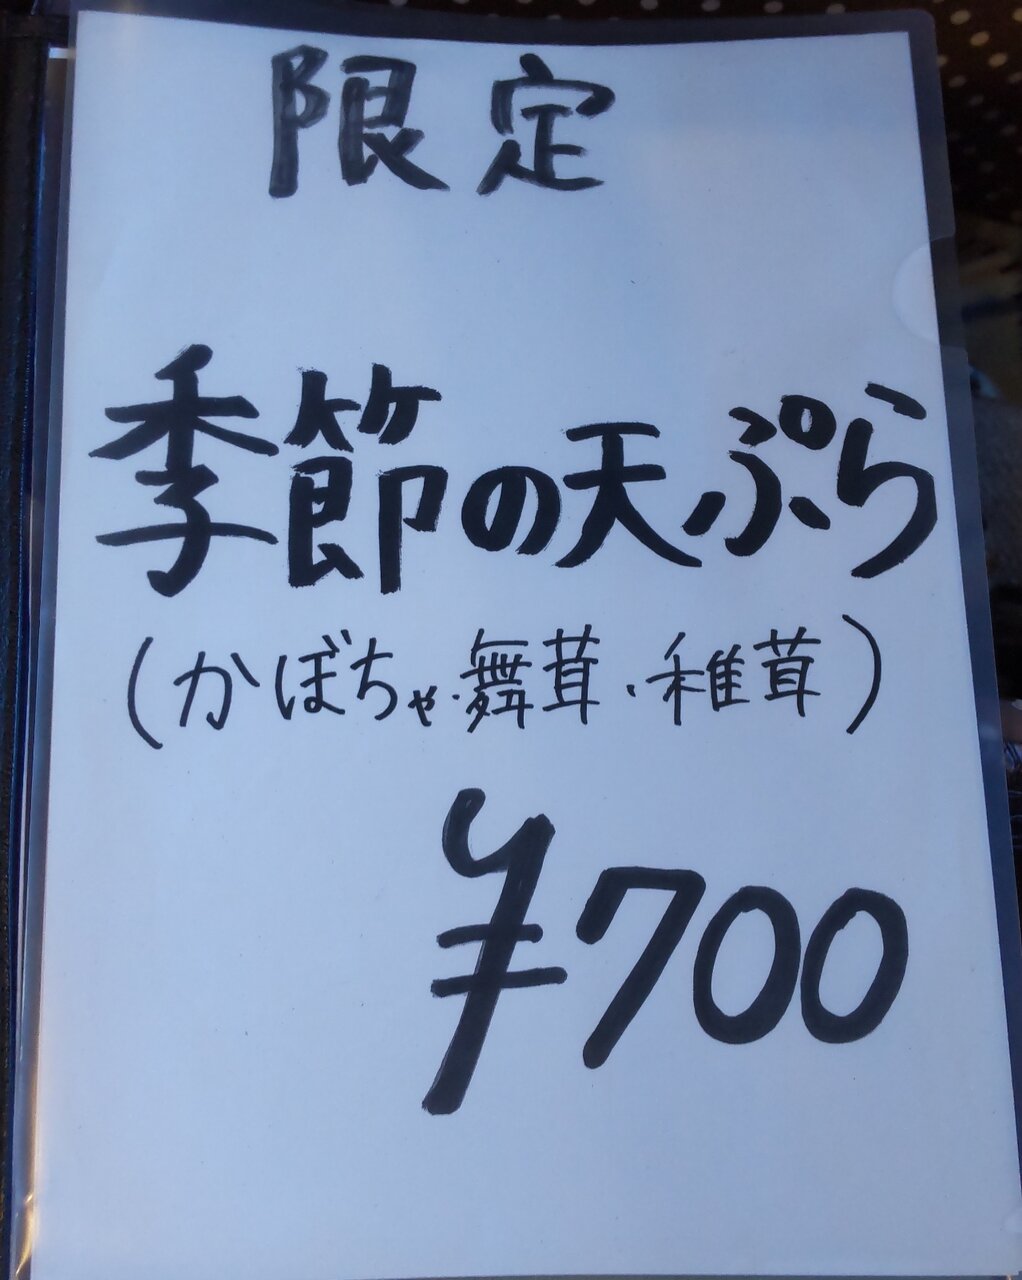 限定
季節の天ぷら
(かぼちゃ・舞茸・稚茸)
¥700